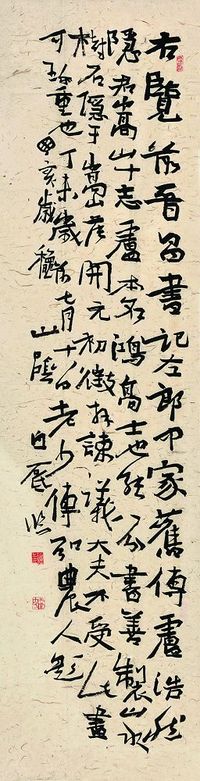 右覽前晉昌書記左郎中家舊傳盧浩然
隱居嵩山十志盧本名鴻高士也能八分書善製山水
樹石隱于嵩岳開元初徵拜諫議大夫不受此畫
可珍重也丁未歲前七月十八日老少傅弘農人題
亥歲穐山陰